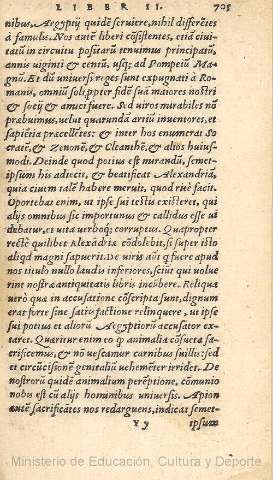 LIBER II. 705
nibus. Aegyptij quidē seruiere, nihil differētes
à famulis. Nos autē liberi cōsistentes, etiā ciui-
tatū in circuitu positarū tenuimus principatū,
annis uiginti & centū, usq; ad Pompeiū Ma-
gnū. Et dū uniuersi reges sunt expugnati à Ro-
manis, omniū soli, ꝓpter fidē suā maiores nostri
& socij & amici fuere. Sed uiros mirabiles nō
præbuimus, uelut quarundā artiū inuentores, et
sapiētia præcellētes: & inter hos enumerat So
cratē, & Zenonē, & Cleanthē, & alios huius-
modi. Deinde quod potius est mirandū, semet-
ipsum his adiecit, & beatificat Alexandriā,
quia ciuem talē habere meruit, quod riuè facit.
Oportebat enim, ut ipse sui testis existeret, qui
alijs omnibus sic importunus & callidus esse ui
debatur, et uita uerboq; corruptus. Quapropter
rectè quilibet Alexādriæ cōdolebit, si super isto
aliqd magni sapuerit. De uiris aūt q fuere apud
nos titulo nullo laudis inferiores, sciūt qui uolue
rint nostræ antiquitatis libris incūbere. Reliqua
uerò quæ in accusatione cōscripta sunt, dignum
erat forte sine satisfactione relinquere, ut ipse
sui potius et aliorū Aegyptiorū accusator ex-
taret. Quæritur enim eo q animalia cōsueta sa-
crificemus, & nō uescamur carnibus suillis: sed
et circūcisionē genitaliū uehemēter irridet. De
nostrorū quidē animalium perēptione, cōmunio
nobis est cū alijs hominibus uniuersis. Apion
autē sacrificātes nos redarguens, indicat semet-
Y y ipsum
Ministerio de Educación, Cultura y Deporte